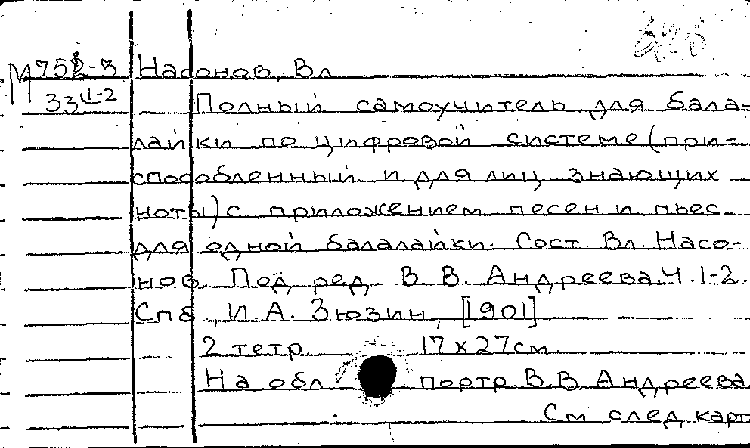 М 752-3 Насонов, Вл
33 I-2 Полный самоучитель для бала-
лайки по цифровой системе (при-
способленный и для лиц, знающих
ноты) с приложением песен и пьес
для одной балалайки. Сост Вл Насо-
нов. Под ред В В. Андреева. Ч. 1-2.
Спб, И А. Зюзин, [1901]
2 тетр 17 х 27 см
На обл портр В В Андреева
См след карт